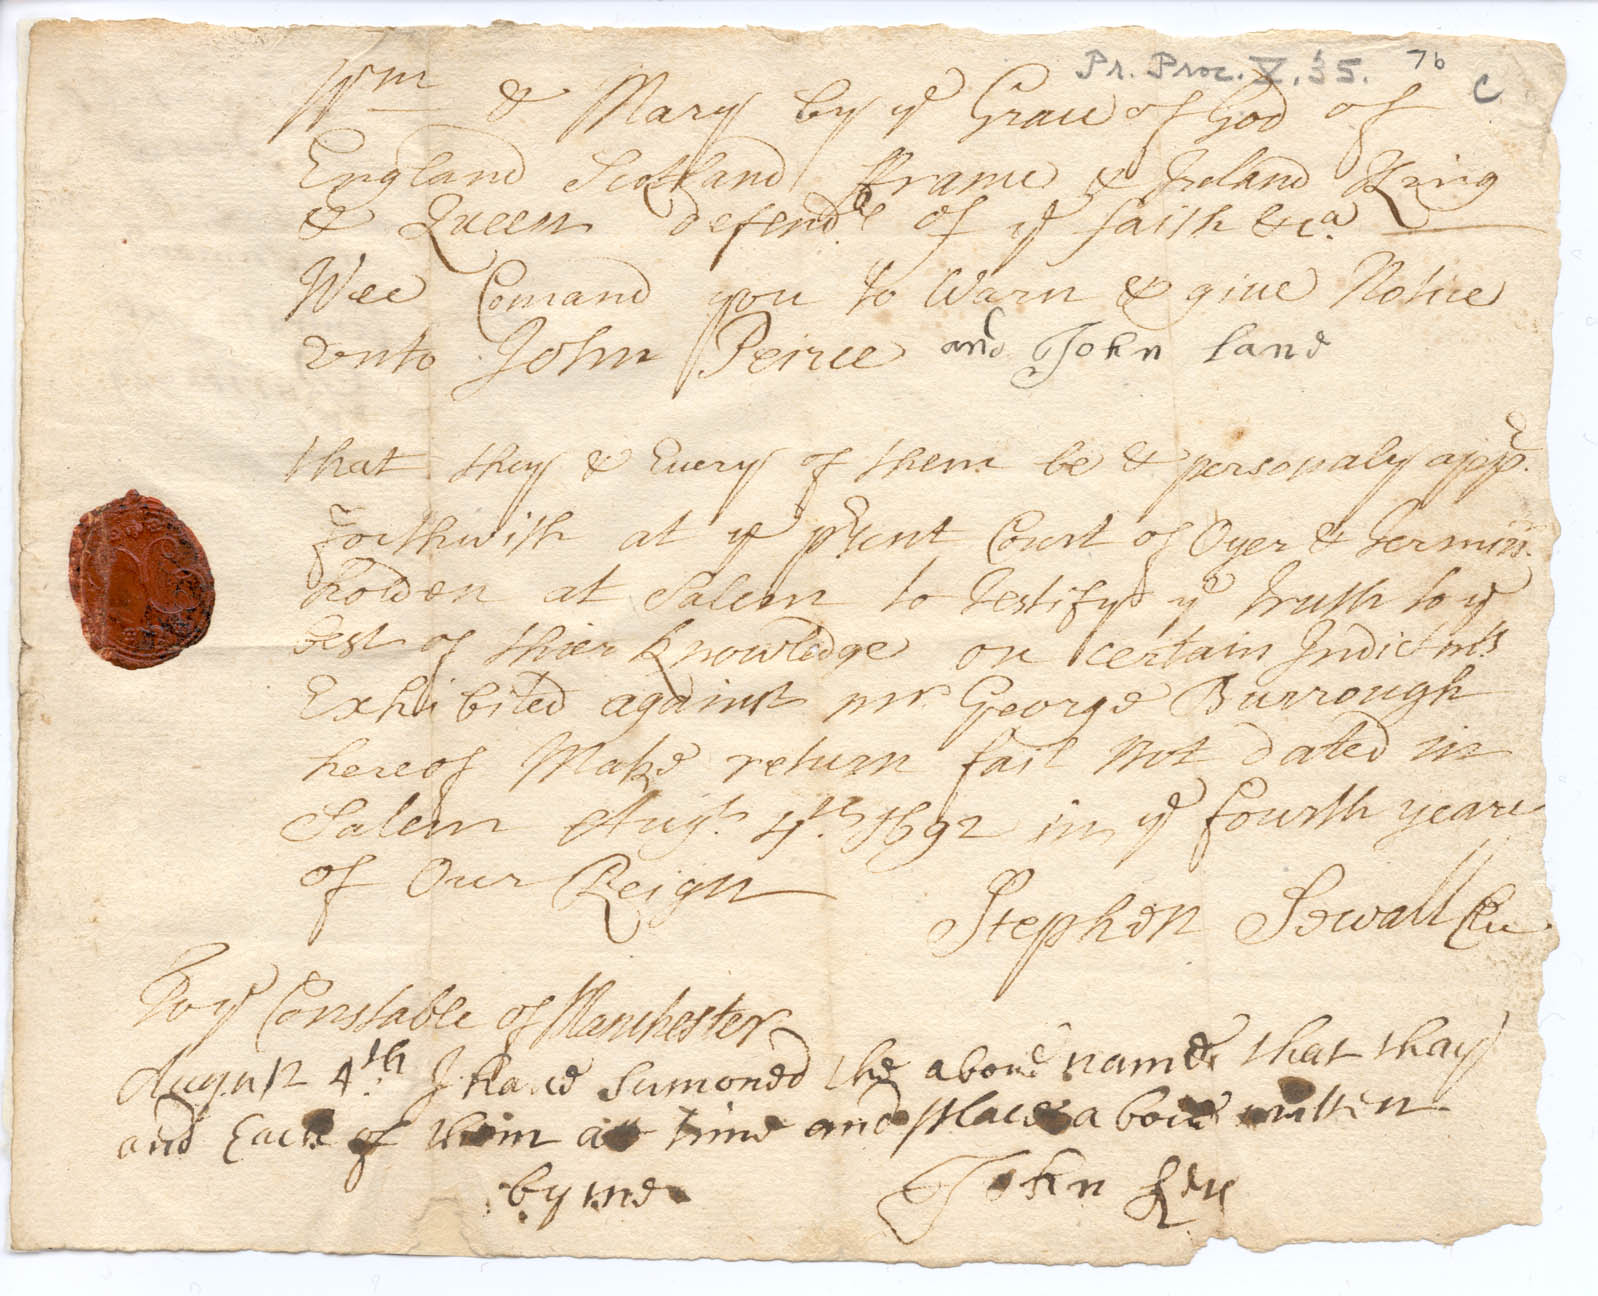 Pr. Proc. X. 35. 76 C
Wm & Mary by ye Grace of God of
England Scotland ffrance & Ireland King
& Queen defendrs of ye faith &ca
Wee Comand you to Warn & giue Notice
vnto John Peirce and John Land
that they & Euery of them be & personaly appr.
forthwith at ye prsent Court of Oyer & Termin
holden at Salem to testify ye truth to ye
best of thier knowledge on certain Indictmts
Exhibited against mr. George Burrough
hereof Make return fail not dated in
Salem Augst. 4th. 1692 in ye fourth yeare
of Our Reign
Stephen Sewall Cler
To ye Constable of Manchester
August 4th. I haue sumoned the aboue named that thay
and Each of them at time and place aboue written
by me John Ley